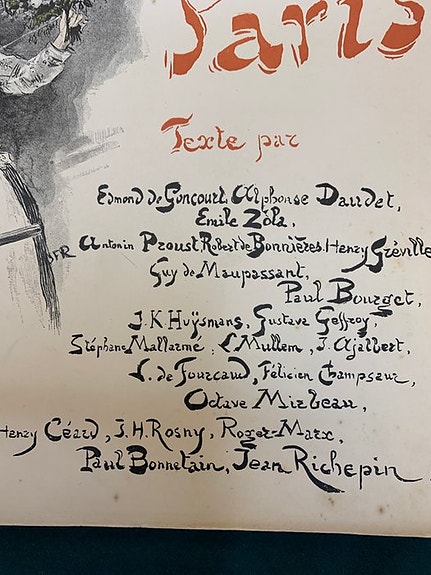 Paris
Texte par
Edmond de Goncourt, Alphonse Daudet,
Emile Zola,
JFR
Antonin Proust, Robert de Bonnières, Henry Gréville
Guy de Maupassant,
Paul Bourget,
J. K Huysmans, Gustave Geffroy,
Stéphane Mallarmé, L. Mullem, J. Ajalbert,
L. de Fourcaud, Félicien Champsaur,
Octave Mirbeau,
Henry Céard, J. H. Rosny, Roger-Marx,
Paul Bonnetain, Jean Richepin.